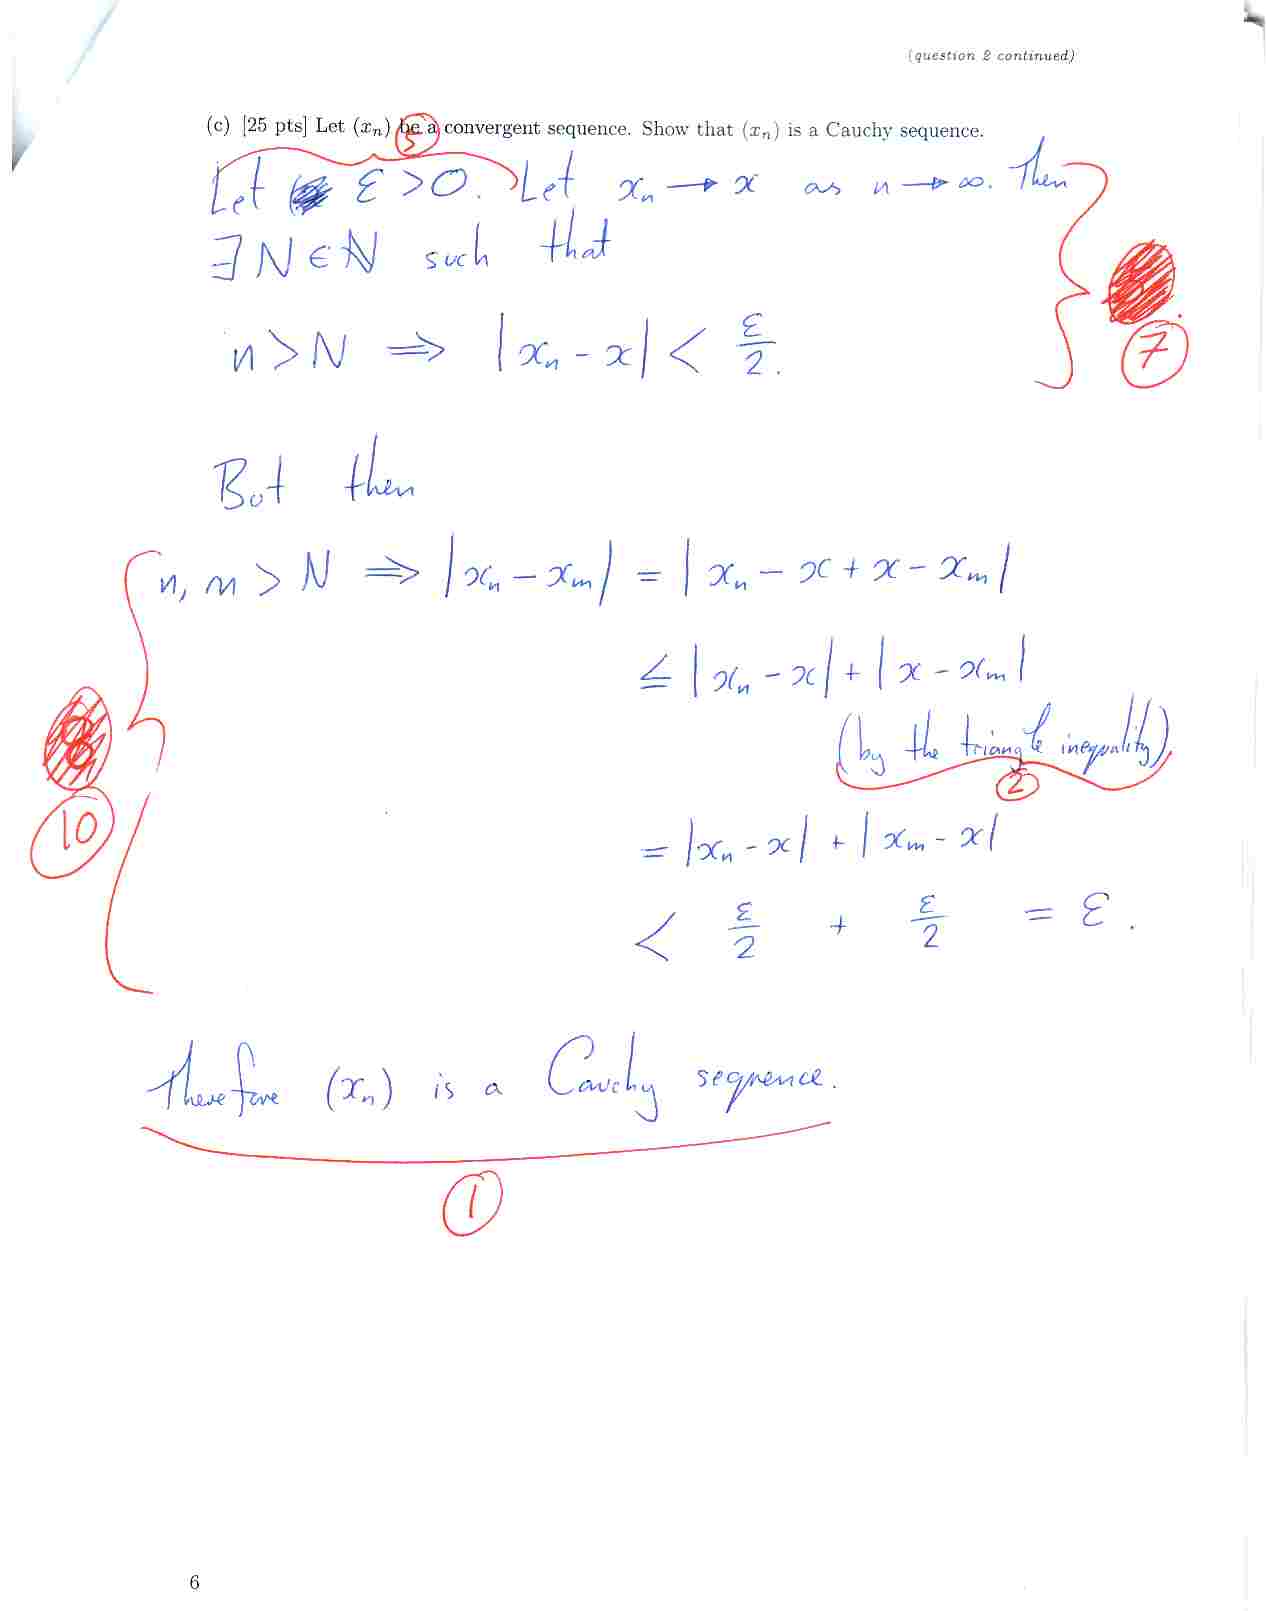 (question 2 continued)
(c) [25 pts] Let (xₙ) be a convergent sequence. Show that (xₙ) is a Cauchy sequence.
5
Let ε > 0. Let xₙ → x as n → ∞. Then
∃ N ∈ ℕ such that
n > N ⇒ |xₙ - x| < ε/2.
7
But then
n, m > N ⇒ |xₙ - xₘ| = |xₙ - x + x - xₘ|
≤ |xₙ - x| + |x - xₘ|
(by the triangle inequality)
2
10
= |xₙ - x| + |xₘ - x|
< ε/2 + ε/2 = ε.
Therefore (xₙ) is a Cauchy sequence.
1
6